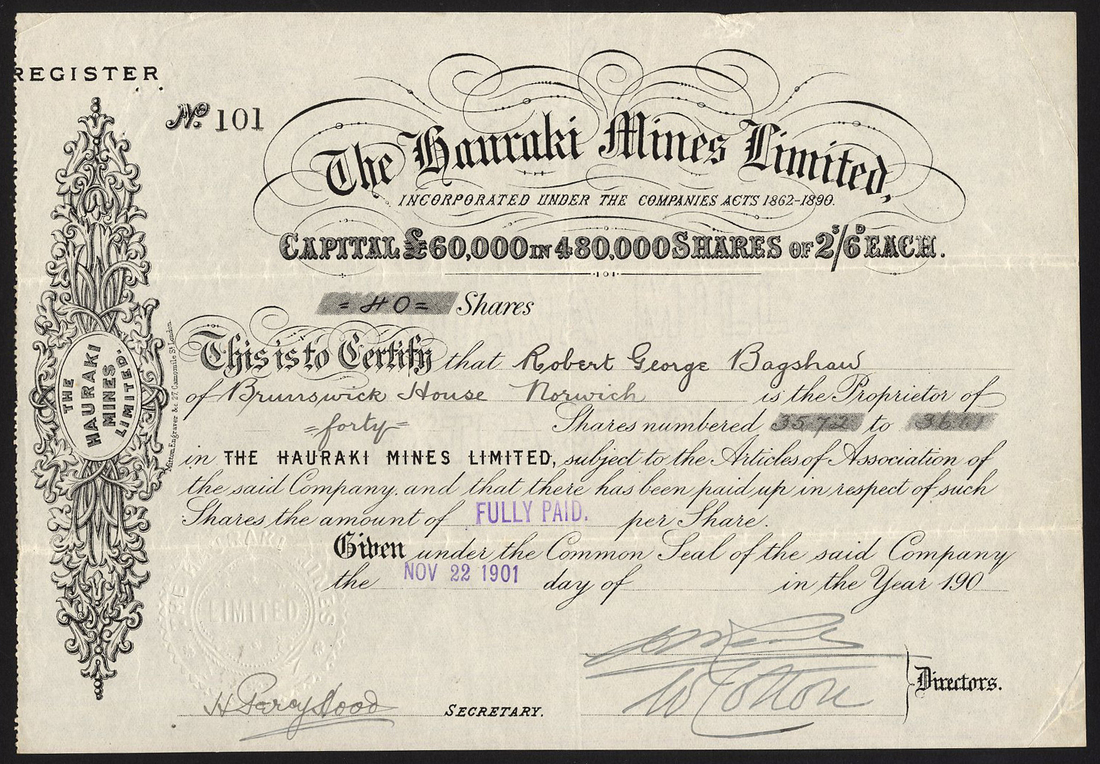 REGISTER
No 101
The Hauraki Mines Limited,
INCORPORATED UNDER THE COMPANIES ACTS 1862-1890.
CAPITAL £60,000 IN 480,000 SHARES OF 2s/6d EACH.
= 40 = Shares
This is to Certify that Robert George Bagshaw
of Brunswick House Norwich is the Proprietor of
=forty= Shares numbered 3572 to
in THE HAURAKI MINES LIMITED, subject to the Articles of Association of
the said Company, and that there has been paid up in respect of such
Shares the amount of FULLY PAID. per Share.
Given under the Common Seal of the said Company
the NOV 22 1901 day of in the Year 190
Directors.
H Percy Hood SECRETARY.
W Cotton
THE
HAURAKI
MINES
LIMITED.
Engraver &c 27 Camomile St London
LIMITED